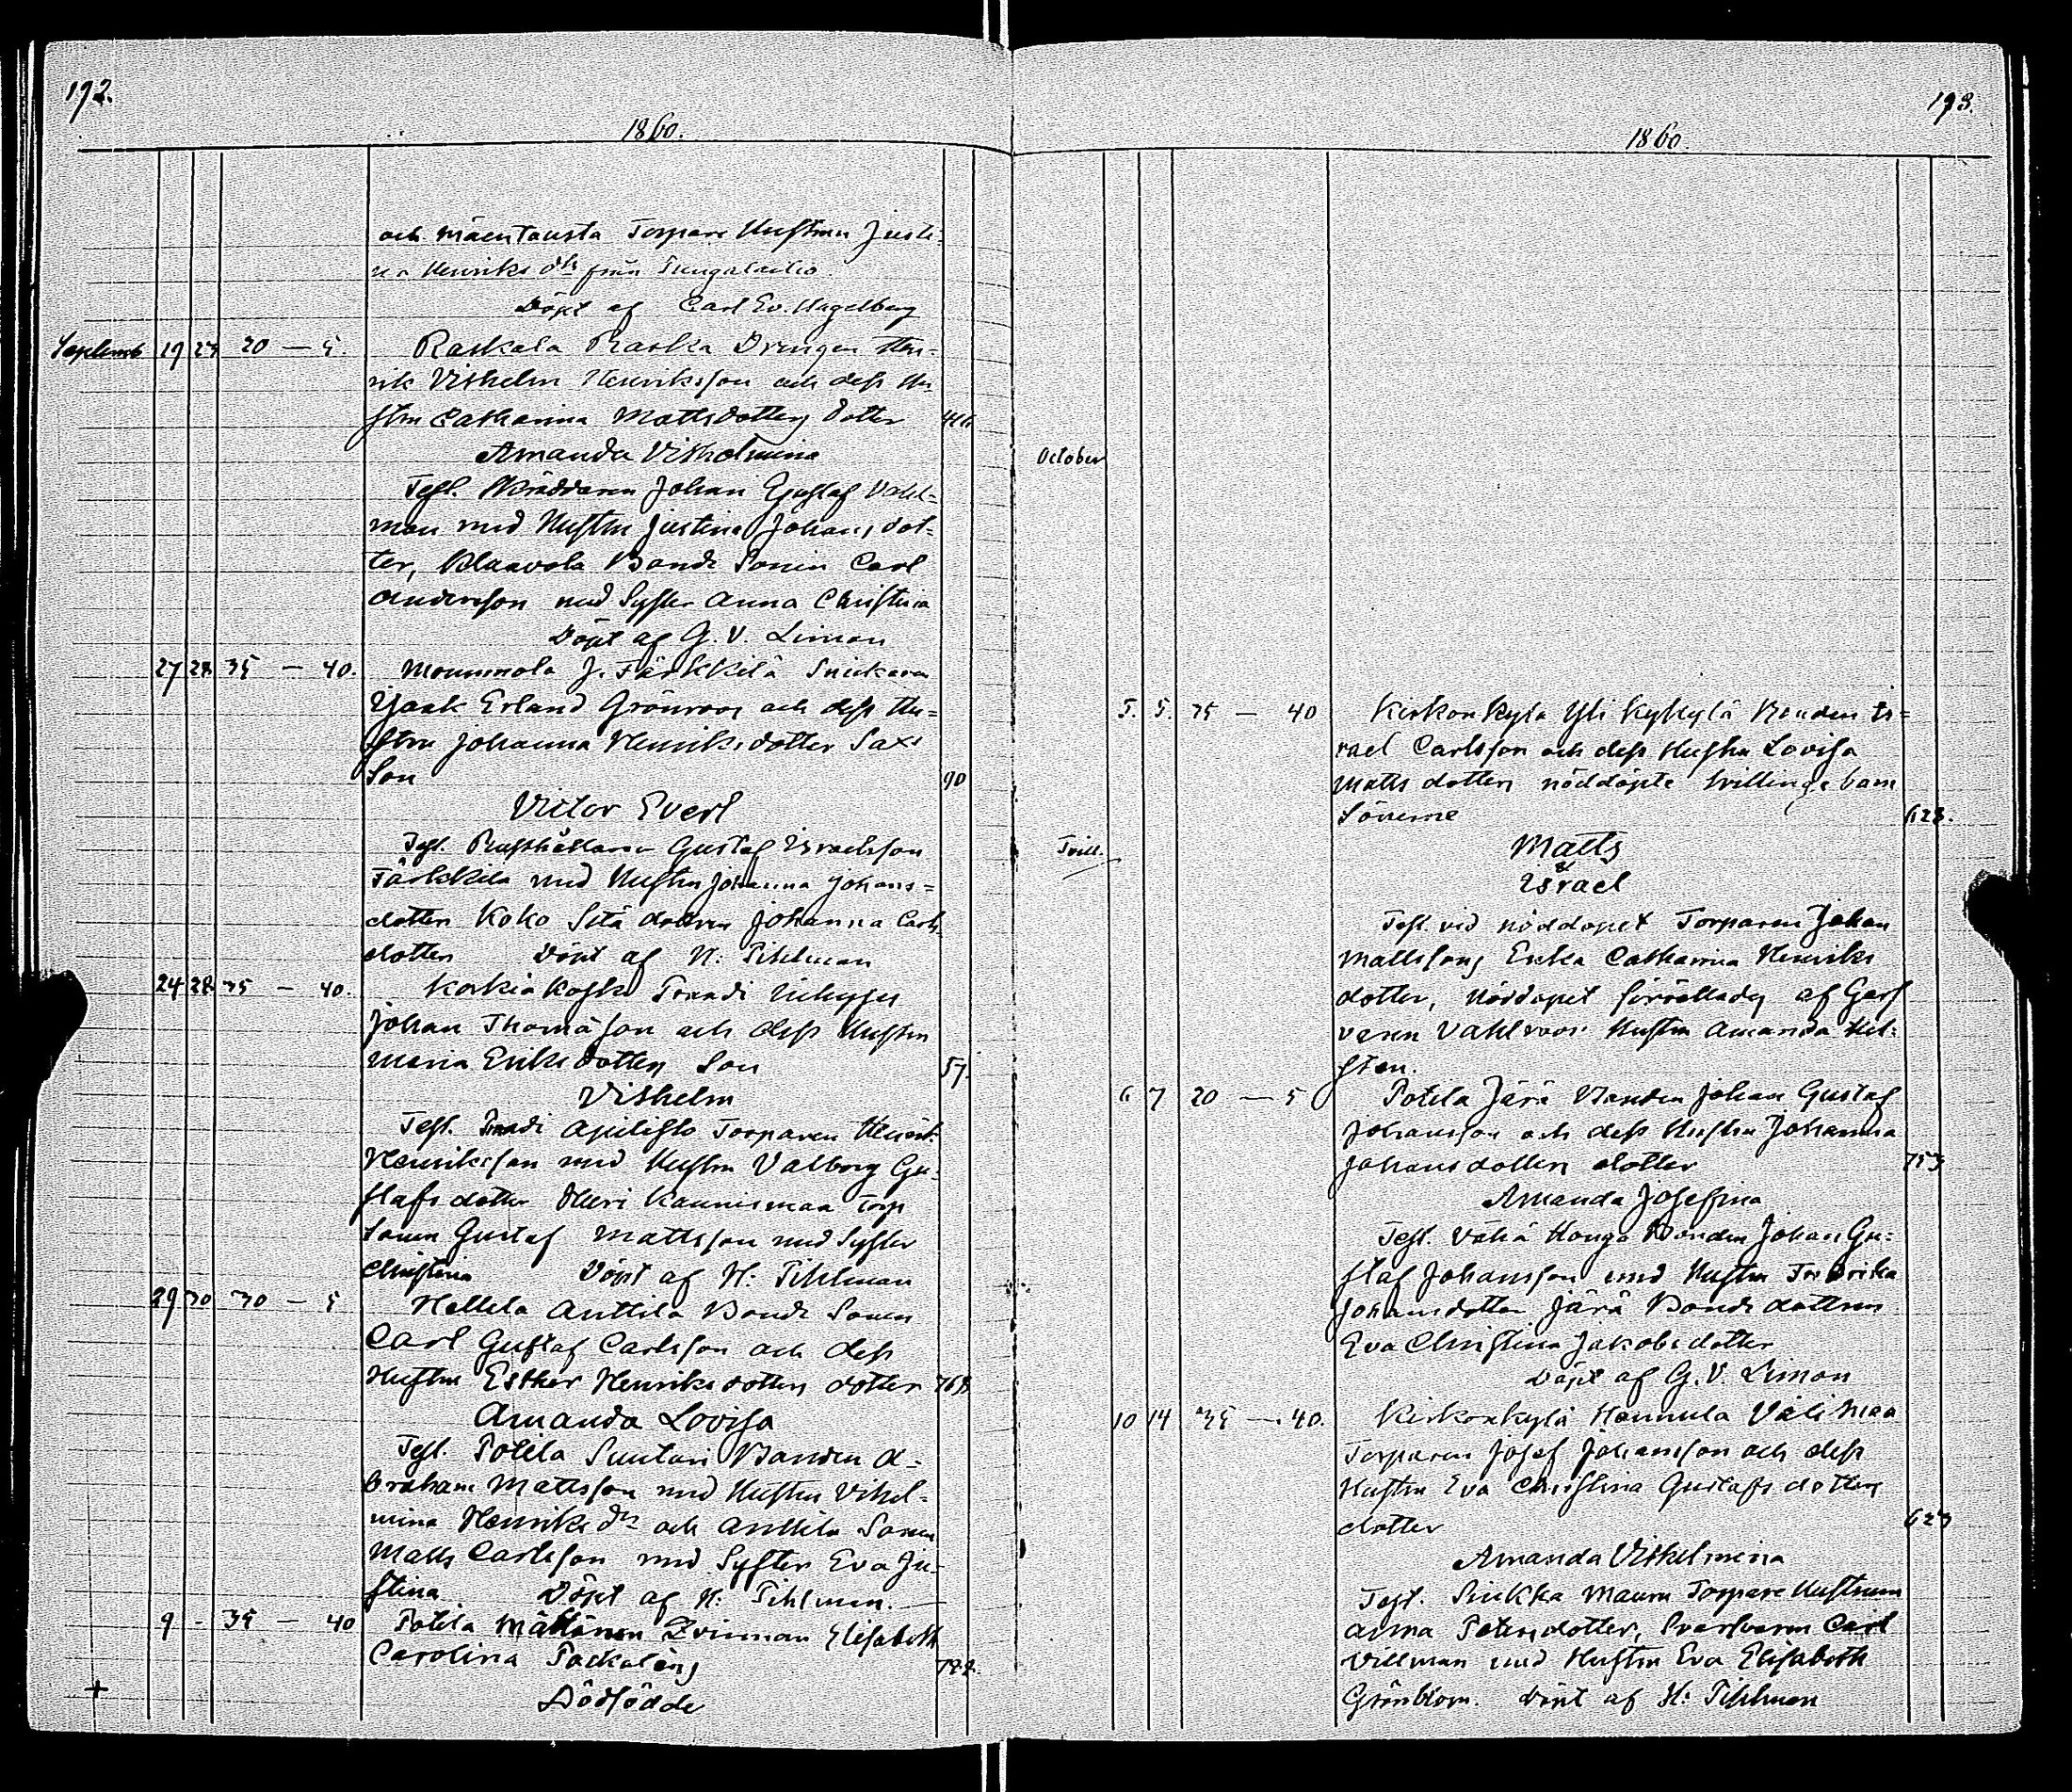 192.
1860.
och Mäentausta Torpare Hustrun Justi-
na Henriks dtr från
Döpt af Carl Ev. Hagelberg
Septemb 19 23 20 — 5. Raskala Raska Drengen Hen-
rik Vilhelm Henriksson och dess Hu-
stru Catharina Mattsdotters dotter
Amanda Vilhelmina
Test. Skräddaren Johan Gustaf Vahl-
man med Hustru Justina Johans dot-
ter, Klaavola Bonde Sonen Carl
Andersson med Syster Anna Christina
Döpt af G. V. Limon
27 28 35 — 40. Mommola J. Färkkilä Snickaren
Isaak Erland Grönroos och dess Hu-
stru Johanna Henriksdotter Sax'
Son 90
Victor Evert
Test. Rusthållaren Gustaf Israelsson
Färkkilä med Hustru Johanna Johans-
dotter Koko Sitä dottren Johanna Carls
dotter Döpt af H. Pihlman
24 28 35 — 40. Korkia Koski Prandi
Johan Thomasson och dess Hustru
Maria Eriksdotters Son 57.
Vilhelm
Test. Prandi Torparen Henrik
Henriksson med Hustru Valborg Gu-
stafs dotter Kaunismaa Torp
Sonen Gustaf Mattsson med Syster
Christina Döpt af H: Pihlman
29 30 30 — 5 Hellela Anttila Bonde Sonen
Carl Gustaf Carlsson och dess
Hustru Esther Henriksdotters dotter
Amanda Lovisa
Test. Potila Suutari Bonden A-
braham Mattsson med Hustru Vilhel-
mina Henriks dtr och Anttila Sonen
Matts Carlsson med Syster Eva Ju-
stina Döpt af H: Pihlman. —
9 - 35 — 40 Potila Mättänen Qvinnan Elisabeth
Carolina
+ Dödfödde
193.
1860.
October
5. 5. 35 — 40 Kirkonkylä Yli Kyhylä Bonden Is-
rael Carlsson och dess Hustru Lovisa
Matts dotters nöddöpte tvillinge barn
Sönerne 623.
Tvill. Matts
&
Israel
Test. vid nöddopet Torparen Johan
Mattssons Enka Catharina Henriks
dotter, Nöddopet förrättades af Garf
varen Vahlroos' Hustru Amanda Hel-
sten.
6 7 20 — 5 Potila Järä Bonden Johan Gustaf
Johansson och dess Hustru Johanna
Johansdotters dotter 753
Amanda Josefina
Test. Vähä Honga Bonden Johan Gu-
staf Johansson med Hustru Fredrika
Johansdotter Järä Bonde dottren
Eva Christina Jakobsdotter
Döpt af G. V. Limon
10 14 35 — 40. Kirkonkylä Hannula Välimaa
Torparen Josef Johansson och dess
Hustru Eva Christina Gustafs dotters
dotter 623
Amanda Vilhelmina
Test. Maura Torpare Hustrun
Anna Petersdotter, Svarfvaren Carl
Villman med Hustru Eva Elisabeth
Grönblom. Döpt af H: Pihlman